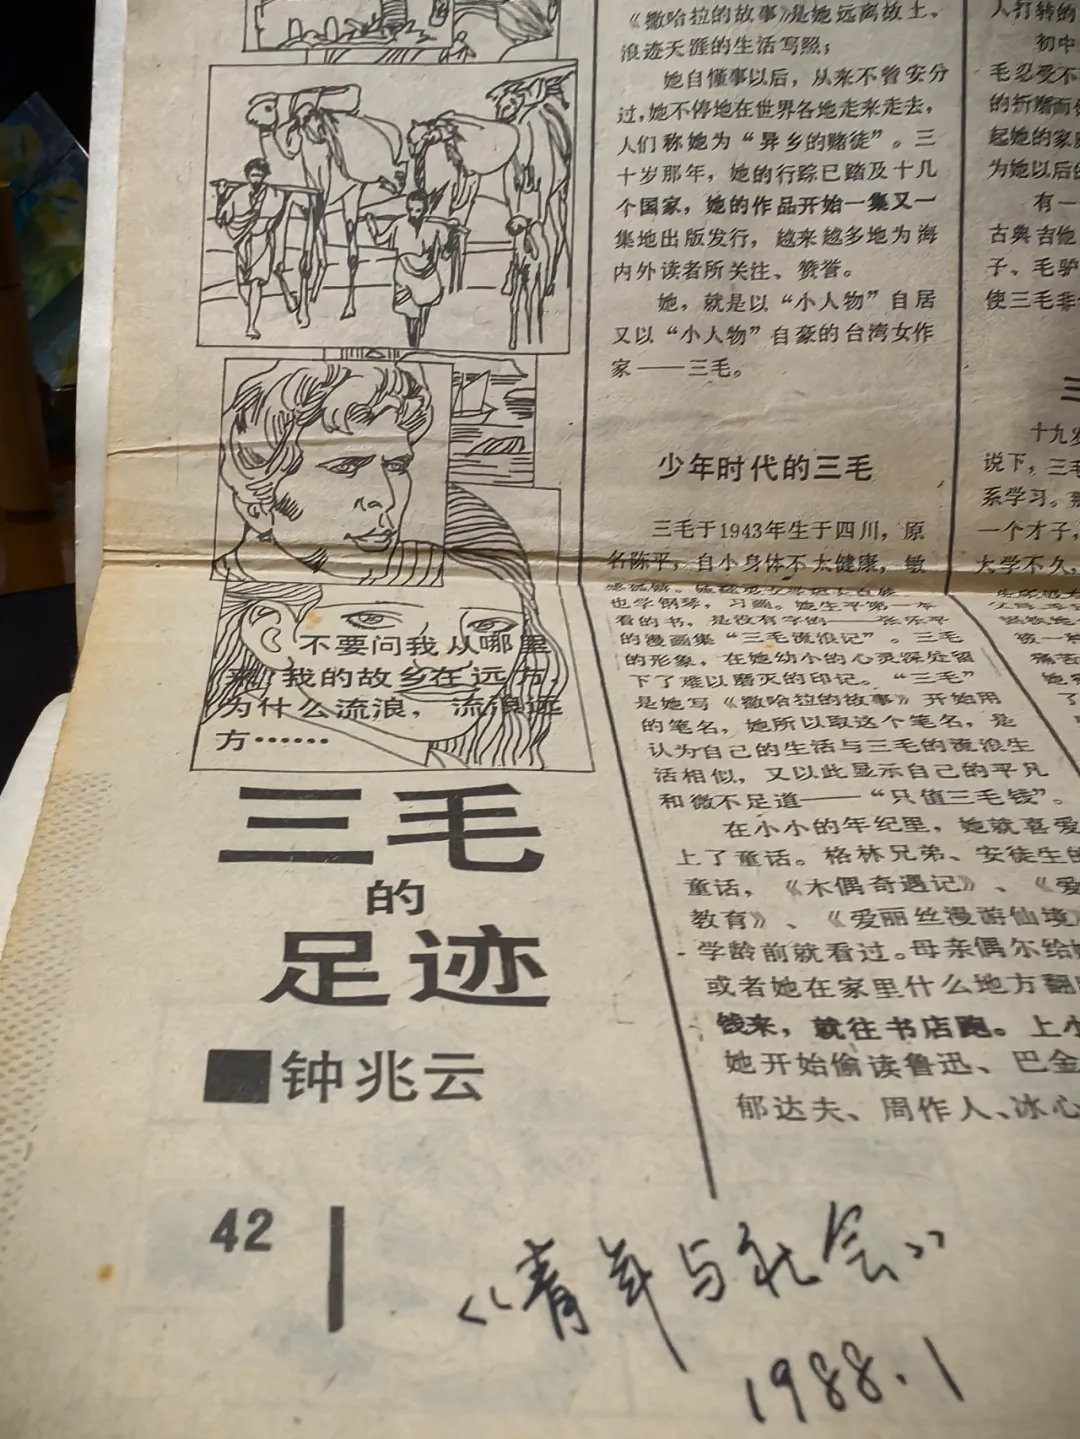 不要问我从哪里
来，我的故乡在远方，
为什么流浪，流浪远
方……
三毛
的
足迹
■钟兆云
42
《青年与社会》
1988.1
《撒哈拉的故事》是她远离故土、
浪迹天涯的生活写照；
她自懂事以后，从来不曾安分
过，她不停地在世界各地走来走去，
人们称她为“异乡的赌徒”。三
十岁那年，她的行踪已踏及十几
个国家，她的作品开始一集又一
集地出版发行，越来越多地为海
内外读者所关注、赞誉。
她，就是以“小人物”自居
又以“小人物”自豪的台湾女作
家——三毛。
少年时代的三毛
三毛于1943年生于四川，原
名陈平，自小身体不太健康，敏
也学钢琴，习画。她生平第一本
看的书，是没有字的——张乐平
的漫画集“三毛流浪记”。三毛
的形象，在她幼小的心灵深处留
下了难以磨灭的印记。“三毛”
是她写《撒哈拉的故事》开始用
的笔名，她所以取这个笔名，是
认为自己的生活与三毛的流浪生
活相似，又以此显示自己的平凡
和微不足道——“只值三毛钱”。
在小小的年纪里，她就喜爱
上了童话。格林兄弟、安徒生的
童话，《木偶奇遇记》、《爱
教育》、《爱丽丝漫游仙境》
学龄前就看过。母亲偶尔给
或者她在家里什么地方翻
钱来，就往书店跑。上小
她开始偷读鲁迅、巴金
郁达夫、周作人、冰心
人打转的
初中
毛忍受不
的折磨而
起她的家
为她以后的
有一
古典吉他
子、毛驴
使三毛非
三
十九岁
说下，三毛
系学习。
一个才子，
大学不久，
被一种
痛苦
了